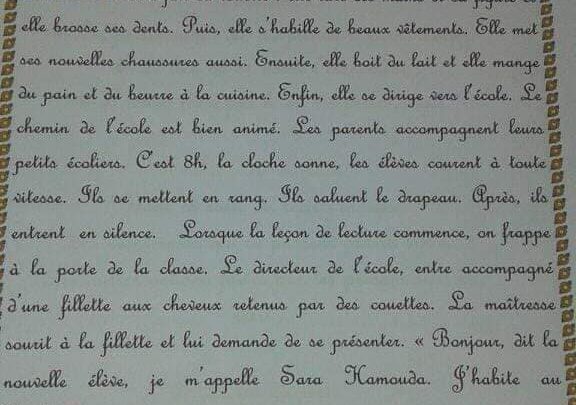 elle brosse ses dents. Puis, elle s'habille de beaux vêtements. Elle met
ses nouvelles chaussures aussi. Ensuite, elle boit du lait et elle mange
du pain et du beurre à la cuisine. Enfin, elle se dirige vers l'école. Le
chemin de l'école est bien animé. Les parents accompagnent leurs
petits écoliers. C'est 8h, la cloche sonne, les élèves courent à toute
vitesse. Ils se mettent en rang. Ils saluent le drapeau. Après, ils
entrent en silence. Lorsque la leçon de lecture commence, on frappe
à la porte de la classe. Le directeur de l'école, entre accompagné
d'une fillette aux cheveux retenus par des couettes. La maîtresse
sourit à la fillette et lui demande de se présenter. « Bonjour, dit la
nouvelle élève, je m'appelle Sara Hamouda. J'habite au